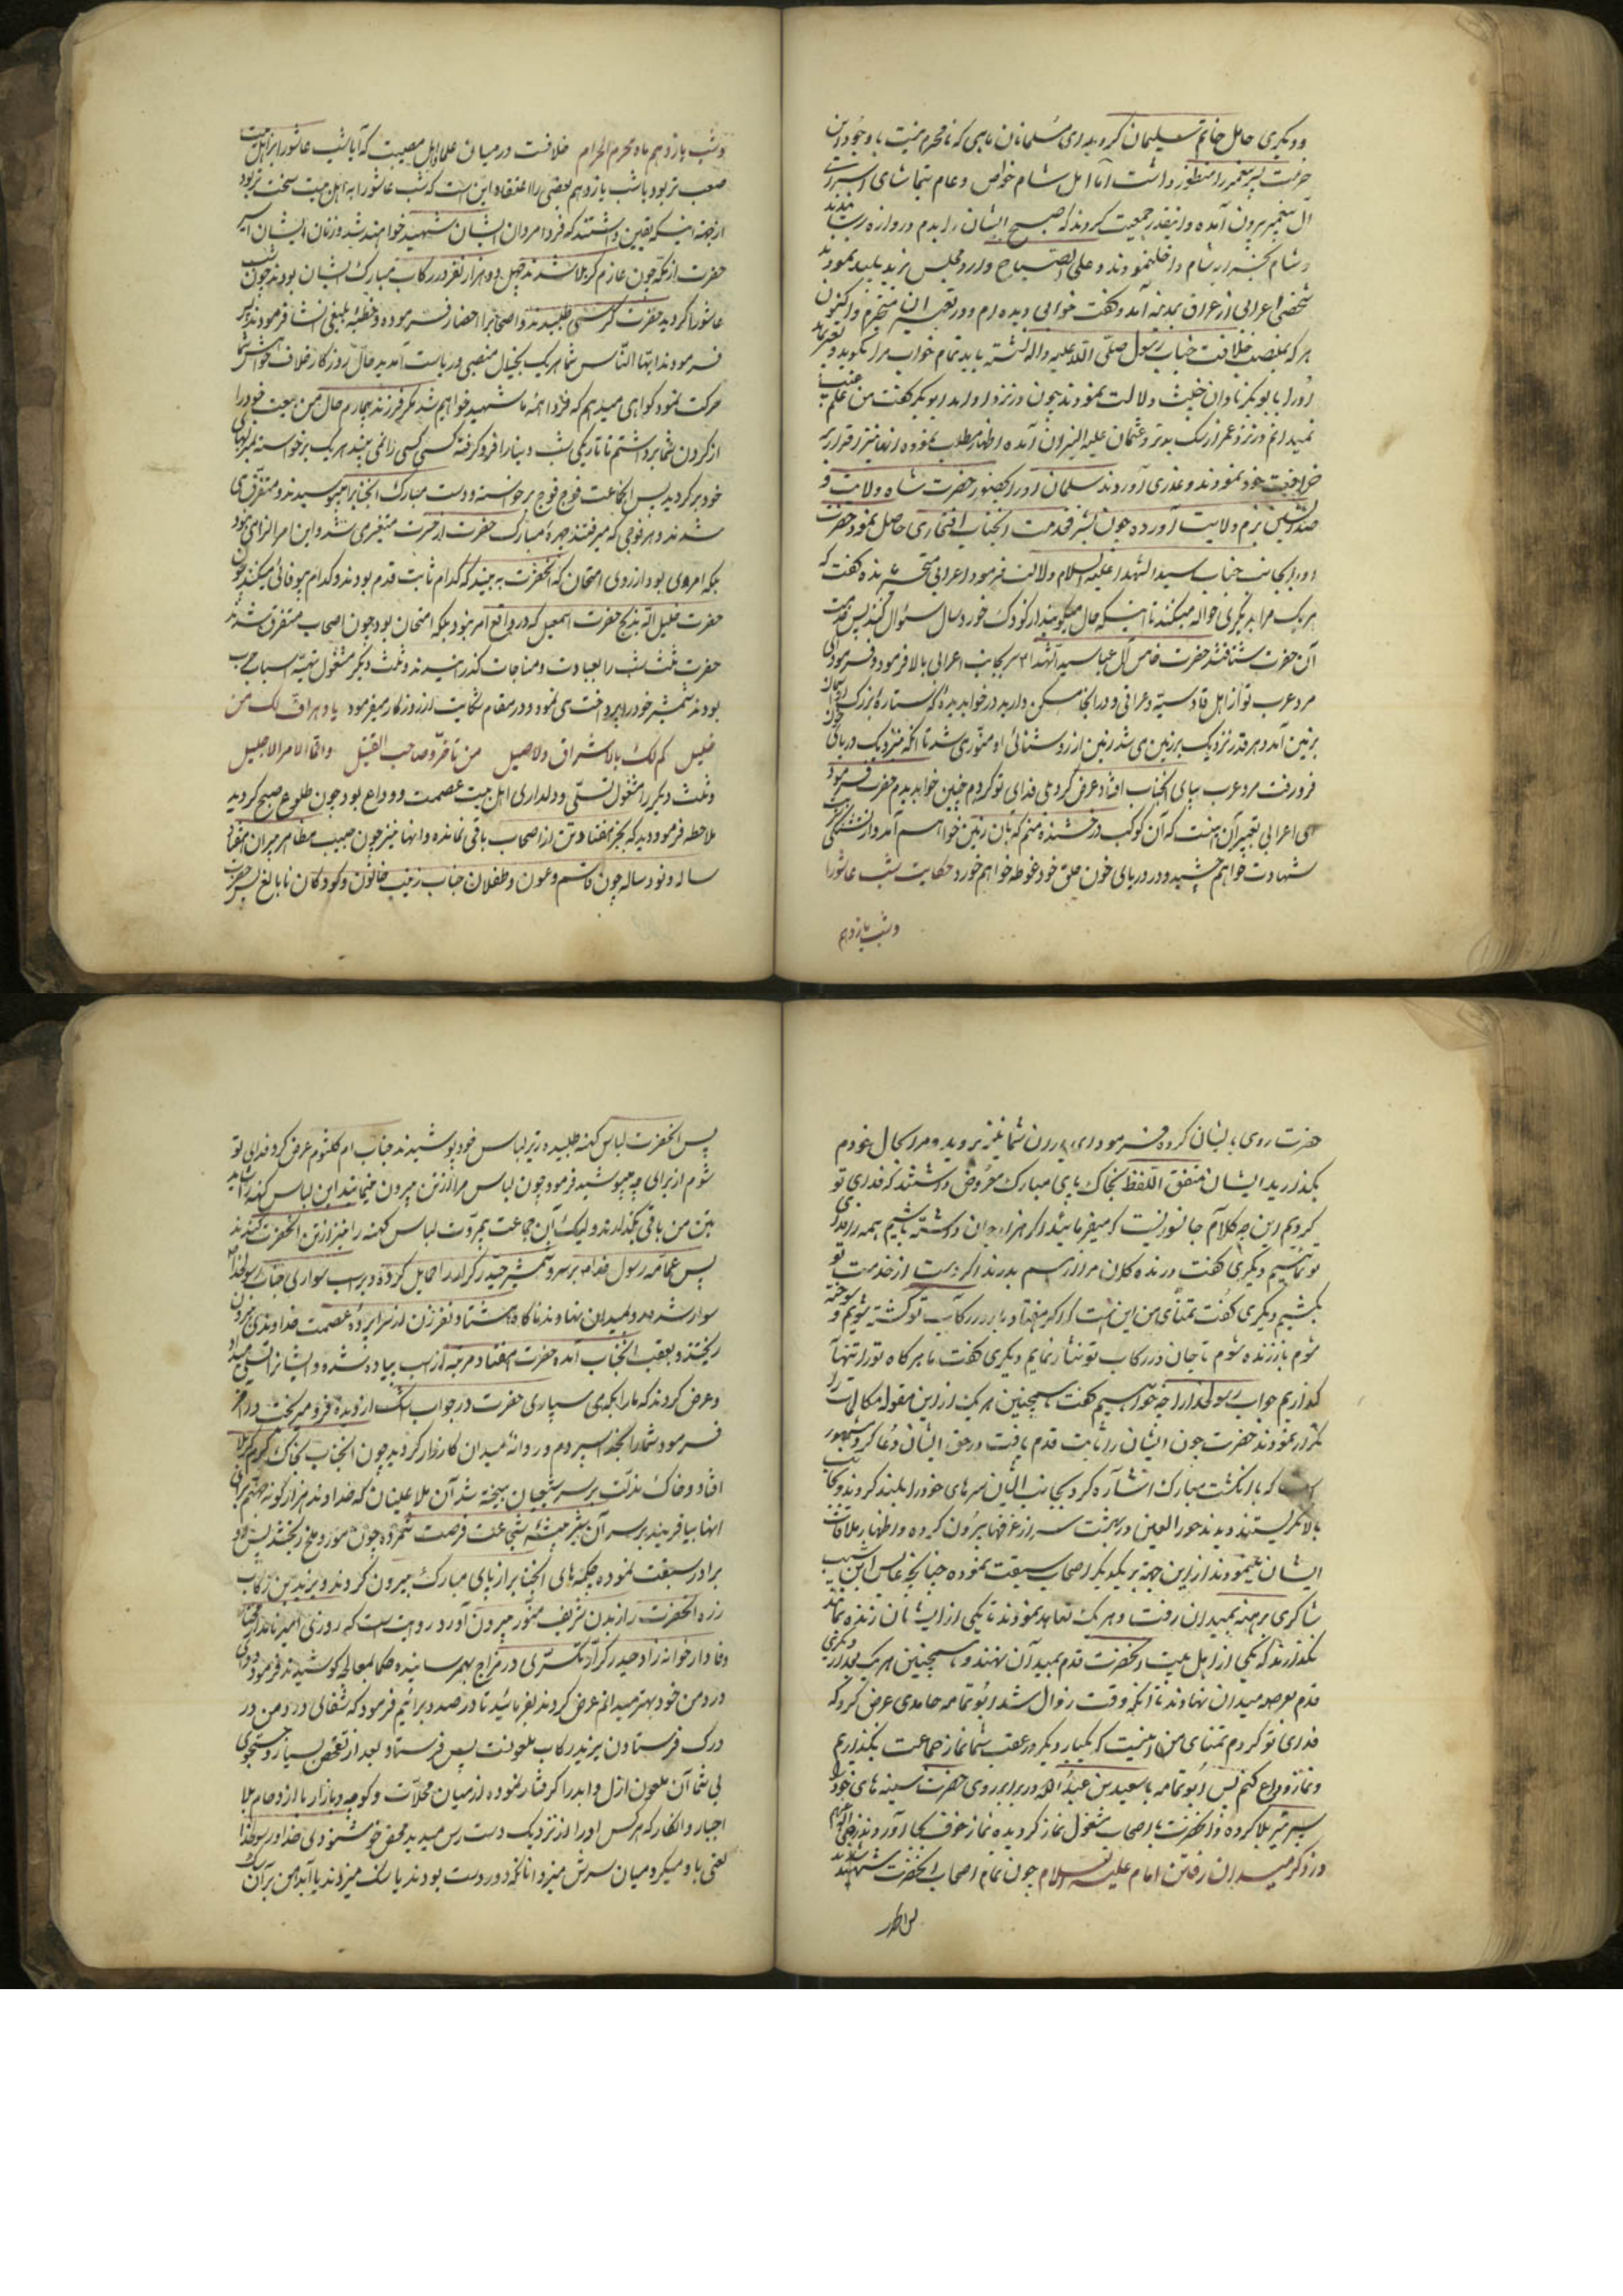 و دیگری حامل خاتم سلیمان کرو بدی مسلمانان باسی که نامحرم نیست با وجود این
حرمت پسر پیغمبر را منظور داشت اما اهل شام خواص و عام بتماشای اسیران
آل پیغمبر بیرون آمده و اینقدر جمعیت کردند که صبح ایشان را بدم دروازه
شام داخل نمودند و علی الصباح وارد مجلس یزید پلید نمودند
شخصی اعرابی از عراق بمدینه آمد و گفت خوابی دیده ام و در تعبیر آن متحیرم و اکنون
هر که بمنصب خلافت جناب رسول صلی الله علیه و اله نشسته باید تمام خواب مرا بگوید و تعبیر نماید
او را بابو بکر نادان خبیث دلالت نمودند چون در نزد او آمد ابوبکر گفت من علم غیب
نمیدانم در نزد عمر از سگ بدتر و عثمان علیه النیران آمده اظهار مطلب نموده
خود نمودند و عذری آوردند سلمان او را بحضور حضرت شاه ولایت و
صدر نشین بزم ولایت آورده چون بشرف خدمت آنجناب افتخاری حاصل نمود حضرت
او را بجانب جناب سید الشهدا علیه السلام دلالت فرمود اعرابی متحیر شده گفت که
هر یک مرا بدیگری حواله میکنند تا اینکه حال میگویند از کودک خورد سال سئوال کنید پس بخدمت
آن حضرت شتافتند حضرت خامس آل عبا سید الشهدا سر بجانب اعرابی بالا فرمود و فرمود ای
مرد عرب تو از اهل قادسیه و عراقی و در آنجا مسکن دارید در خواب دیدهٔ که ستارهٔ بزرگ از آسمان
بزمین آمد و هر قدر نزدیک بزمین می شد زمین از روشنائی او منوری شد تا آنکه نزدیک دریای خون
فرو رفت مرد عرب بپای آنجناب افتاد عرض کرد بلی فدای تو گردم چنین خواب دیدم حضرت فرمود
ای اعرابی تعبیر آن اینست که آن کوکب درخشنده منم که بان زمین خواهم آمد و از تشنگی شربت
شهادت خواهم چشید و در دریای خون حلق خود غوطه خواهم خورد حکایت شب عاشورا
و شب یازدهم
و شب یازدهم ماه محرم الحرام خلافست در میان علما اهل مصیبت که آیا شب عاشورا بر اهل بیت
صعب تر بود یا شب یازدهم بعضی را اعتقاد این است که شب عاشورا به اهل بیت سخت تر بود
از جهة اینکه یقین داشتند که فردا مردان ایشان شهید خواهند شد و زنان ایشان اسیر
حضرت از مکه چون عازم کربلا شدند چهل و دو هزار نفر در رکاب مبارک ایشان بودند چون شب
عاشورا گردید حضرت کرسی طلبیدند و اصحاب را احضار فرموده و خطبهٔ بلیغی انشا فرمودند پس
فرمودند ایها الناس شما هر یک بخیال منصبی و ریاست آمدید حال روزگار خلاف خواهش شما
حرکت نمود گواهی میدهم که فردا همه ما شهید خواهیم شد مگر فرزند بیمارم حال من بیعت خود را
از گردن شما برداشتم تا تاریکی شب دنیا را فرو گرفته کسی کسی را نمی بیند هر یک برخواسته بمنزلهای
خود برگردید پس آنجماعت فوج فوج برخواسته و دست مبارک آنجناب را میبوسیدند و متفرق می
شدند و هر فوجی که میرفتند چهرهٔ مبارک حضرت از حسرت متغیر می شد و این امر الزامی نبود
بلکه امری بود از روی امتحان که آنحضرت به بیند که کدام ثابت قدم بودند و کدام بیوفائی میکنند چون
حضرت خلیل الله بذبح حضرت اسمعیل که در واقع امر نبود بلکه امتحان بود چون اصحاب متفرق شدند
حضرت ثلث شب را بعبادت و مناجات گذرانیدند و ثلث دیگر مشغول تهیه اسباب حرب
بودند شمشیر خود را می نمود و در مقام شکایت از روزگار میفرمود یا دهر اف لک من
خلیل کم لک بالاشراق و الاصیل من صاحب القتیل و انما الامر الی الجلیل
و ثلث دیگر را مشغول تسلی و دلداری اهل بیت عصمت و وداع بود چون طلوع صبح گردید
ملاحظه فرمودید که بجز هفتاد تن از اصحاب باقی نمانده و آنها نیز چون حبیب مظاهر پیران هفتاد
ساله و نود ساله چون قاسم و عون و طفلان جناب زینب خاتون و کودکان نابالغ پس حضرت
حضرت روی بایشان کرده فرمود ای یاران شما نیز بروید و مرا بحال خودم
بگذارید ایشان متفق اللفظ بخاک پای مبارک معروض داشتند که فدای تو
گردیم این چه کلام جانسوزیست که میفرمائید اگر هزار جان داشته باشیم همه را فدای
تو نمائیم دیگری گفت درنده گان مرا از هم بدرند اگر دست از خدمت تو
بکشم و دیگری گفت تمنای من این است که اگر هفتاد بار در رکاب تو کشته شویم و سوخته
شوم باز زنده شوم تا جان در رکاب تو نثار نمایم دیگری گفت ما هر گاه تو را تنها
گذاریم جواب رسولخدا را چه خواهیم گفت همچنین هر یک از این مقوله مکالمات را
تکرار نمودند حضرت چون ایشان را ثابت قدم یافت در حق ایشان دعا کرد
که با انگشت مبارک اشاره کرد بجانب ایشان سرهای خود را بلند کردند و بجانب
بالا نگریستند دیدند حور العین در بهشت سر از غرفها بیرون کرده و اظهار ملاقات
ایشان مینمودند از این جهة بر یکدیگر اصحاب سبقت نموده چنانچه عابس ابن شبیب
شاکری برهنه بمیدان رفت و هر یک تعاهد نمودند تا یکی از ایشان زنده بماند
نگذارند که یکی از اهل بیت آنحضرت قدم بمیدان نهند و همچنین هر یک بعد از دیگری
قدم بعرصه میدان نهادند تا آنکه وقت زوال شد ابو ثمامه صامدی عرض کرد که
فدای تو گردم تمنای من اینست که یکبار دیگر در عقب شما نماز جماعت بگذاریم
و نماز وداع کنم پس ابو ثمامه با سعید بن عبد الله در برابر روی حضرت سینه های خود را
سپر تیر بلا کرده و آنحضرت با اصحاب مشغول نماز گردیده نماز خوف بجا آوردند
در ذکر میدان رفتن امام علیه السلام چون تمام اصحاب آنحضرت شهید شدند
پس آنحضرت لباس کهنه طلبیده در زیر لباس خود پوشیدند جناب ام کلثوم عرض کرد فدای تو
شوم از برای چه میپوشید فرمود چون لباس مرا از تن بیرون مینمایند این لباس کهنه را شاید
بتن من باقی بگذارند و لیک آن جماعت بیمروت لباس کهنه را نیز از تن آنحضرت کندند
پس عمامه رسول خدا بر سر و شمشیر حیدر کرار را حمایل کرده و بر اسب سواری جناب رسولخدا
سوار شده رو بمیدان نهادند ناگاه هشتاد نفر زن از سراپردهٔ عصمت خداوندی بیرون
ریختند و بعقب آنجناب آمده حضرت هفتاد مرتبه از اسب پیاده شده و ایشانرا تسلی میداد
و عرض کردند که ما را بکه می سپاری حضرت در جواب اشک از دیده فرو میریخت در آخر
فرمود شما را بخدا سپردم و روانه میدان کارزار گردید چون آنجناب بخاک گرم کربلا
افتاد و خاک مذلت بر سر شیعیان بیخته شد آن ملاعینان که خداوند هزار گونه جهنم برای
انها بیافریند بر سر آن شیر بیشهٔ شجاعت فرصت نکرده چون مور و ملخ ریختند پس دو
برادر سبقت نموده چکمه های آنجناب را از پای مبارک بیرون کردند و یزید بن رکاب
زره آنحضرت را از بدن شریف منور بیرون آورد روایت است که روزی امیر نامدار مختار
وفادار خوانه زاد حیدر کرار تکسری در مزاج بهم رسانیده حکما بمعالجه کوشیدند فرمود دوای
درد من خود بهتر میدانم عرض کردند بفرمائید تا در صدد برائیم فرمود که شفای درد من در
درک فرستادن یزید رکاب ملعونست پس فرستاد بعد از تفحص بسیار و جستجوی
بی شمار آن ملعون ازل و ابد را گرفتار نموده از میان محلات و کوچه و بازار با ازدحام بلا
اجبار و انکار که هر کس او را از نزدیک دست رس میدید محض خوشنودی خدا و رسولخدا
لعنی باو میکرد میان سرش میزد انانکه دور دست بودند یا سنگ میزدند یا آب دهن بر آن